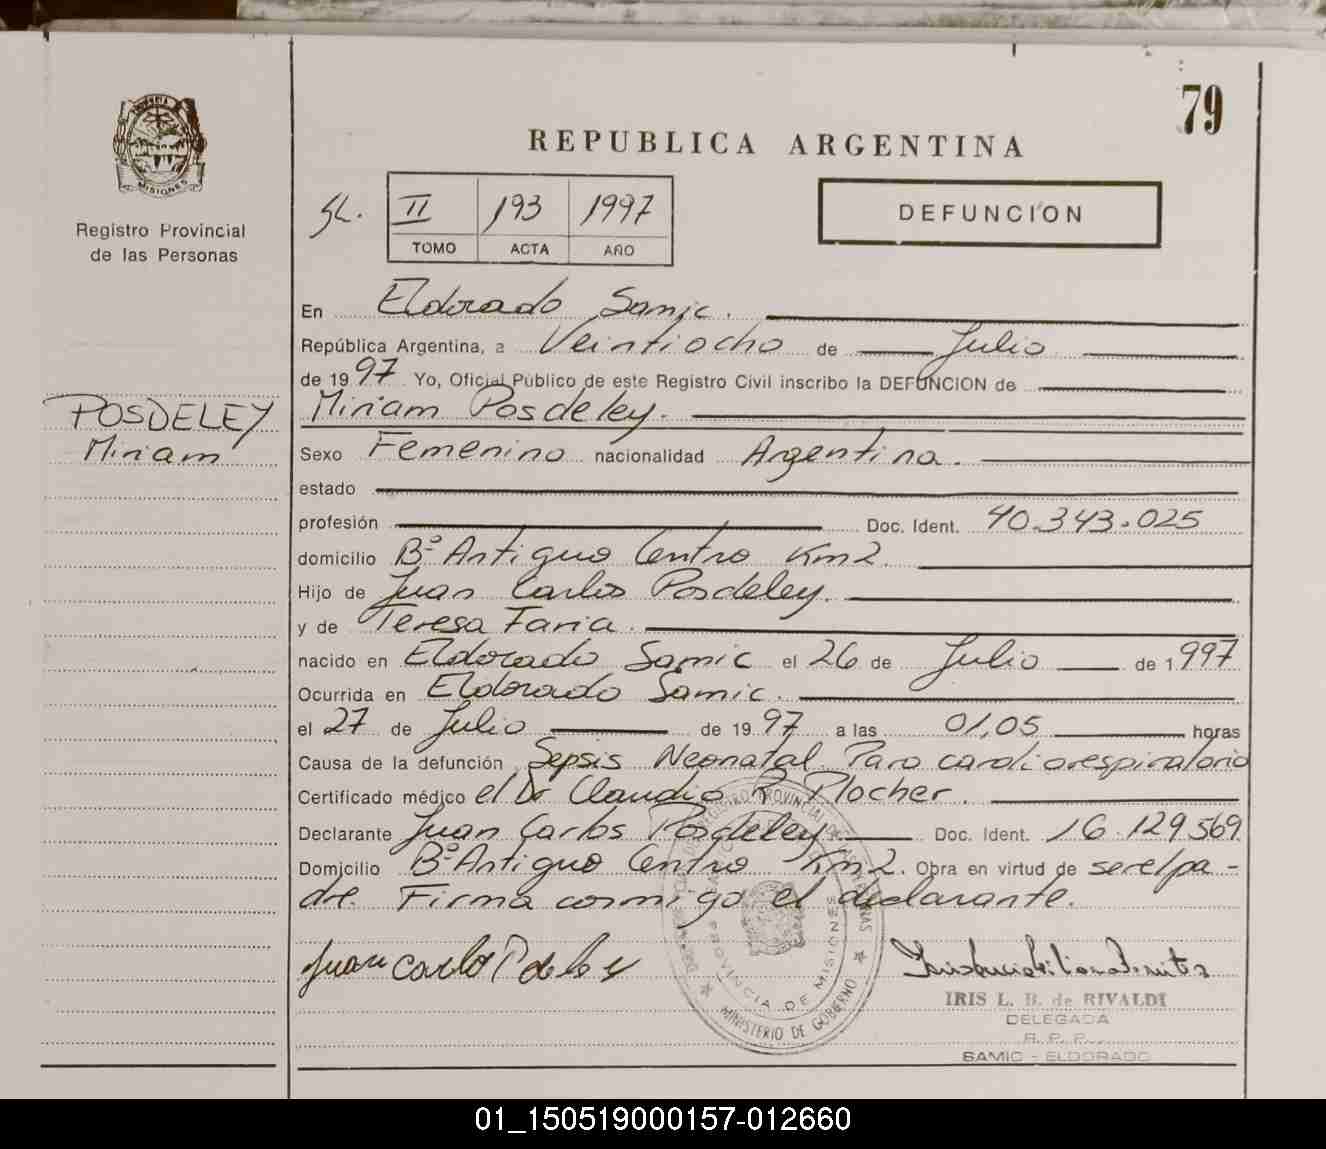 79
REPUBLICA ARGENTINA
MISIONES
Registro Provincial
de las Personas
II 193 1997
TOMO ACTA AÑO
DEFUNCION
En Eldorado Samic.
República Argentina, a Veintiocho de Julio
de 1997 Yo, Oficial Público de este Registro Civil inscribo la DEFUNCION de
POSDELEY
Miriam
Miriam Posdeley.
Sexo Femenino nacionalidad Argentina.
estado
profesión Doc. Ident. 40.343.025
domicilio Bº Antiguo Centro Km2.
Hijo de Juan Carlos Posdeley.
y de Teresa Faria.
nacido en Eldorado Samic el 26 de Julio de 1997
Ocurrida en Eldorado Samic.
el 27 de Julio de 1997 a las 01,05 horas
Causa de la defunción Sepsis Neonatal. Paro cardiorespiratorio
Certificado médico el Dr Claudio R Plocher.
Declarante Juan Carlos Posdeley Doc. Ident. 16.129.569
Domicilio Bº Antiguo Centro Km2. Obra en virtud de ser el pa-
dre. Firma conmigo el declarante.
Juan Carlos
PROVINCIA DE MISIONES
MINISTERIO DE GOBIERNO
IRIS L. B. de RIVALDI
DELEGADA
R. P. P.
SAMIC - ELDORADO
01_150519000157-012660